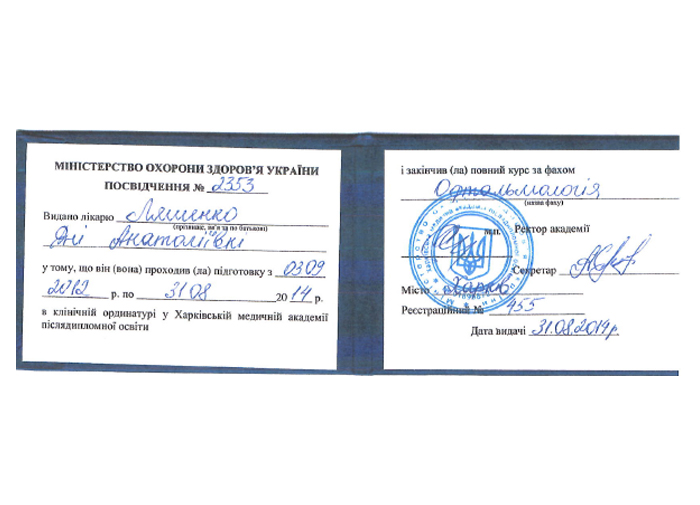 МІНІСТЕРСТВО ОХОРОНИ ЗДОРОВ'Я УКРАЇНИ
ПОСВІДЧЕННЯ № 2353
Видано лікарю Ляшенко
(прізвище, ім'я та по батькові)
Яні Анатоліївні
у тому, що він (вона) проходив (ла) підготовку з 03 09
2012 р. по 31 08 2014 р.
в клінічній ординатурі у Харківській медичній академії
післядипломної освіти
і закінчив (ла) повний курс за фахом
Офтальмологія
(назва фаху)
м.п. Ректор академії
Секретар
Місто Харків
Реєстраційний № 955
Дата видачі 31.08.2014р